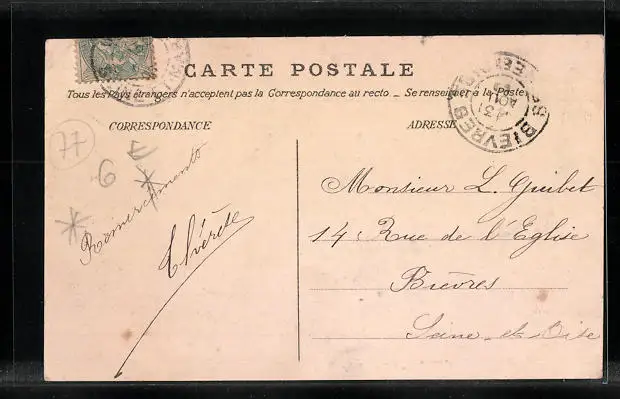 CARTE POSTALE
Tous les Pays étrangers n'acceptent pas la Correspondance au recto — Se renseigner à la Poste
CORRESPONDANCE
ADRESSE
BIEVRES
31
AOU
77
6 E
Remerciements
Monsieur L. Guibet
14, Rue de l'Eglise
Bièvres
Seine-et-Oise